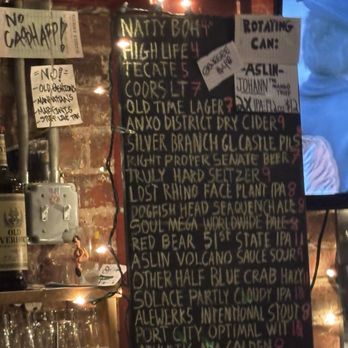 NO
CASH APP!
=NO!=
- OLD FASHIONS
- MANHATTANS
- MARTINIS
OLD
OVERHO
NATTY BOH 4
HIGH LIFE 4
TECATE 5
COORS LT 7
OLD TIME LAGER 7
ANXO DISTRICT DRY CIDER 9
SILVER BRANCH GL CASTLE PILS
RIGHT PROPER SENATE BEER 7
TRULY HARD SELTZER 9
LOST RHINO FACE PLANT IPA 8
DOGFISH HEAD SEAQUENCH ALE 9
SOUL MEGA WORLDWIDE PALE 8
RED BEAR 51ST STATE IPA 11
ASLIN VOLCANO SAUCE SOUR
OTHER HALF BLUE CRAB HAZY
SOLACE PARTLY CLOUDY IPA 10
ALEWERKS INTENTIONAL STOUT 8
PORT CITY OPTIMAL WIT
GOLDEN
ROTATING
CAN:
-ASLIN-
JOHANN
MANGO
2X IPA $12